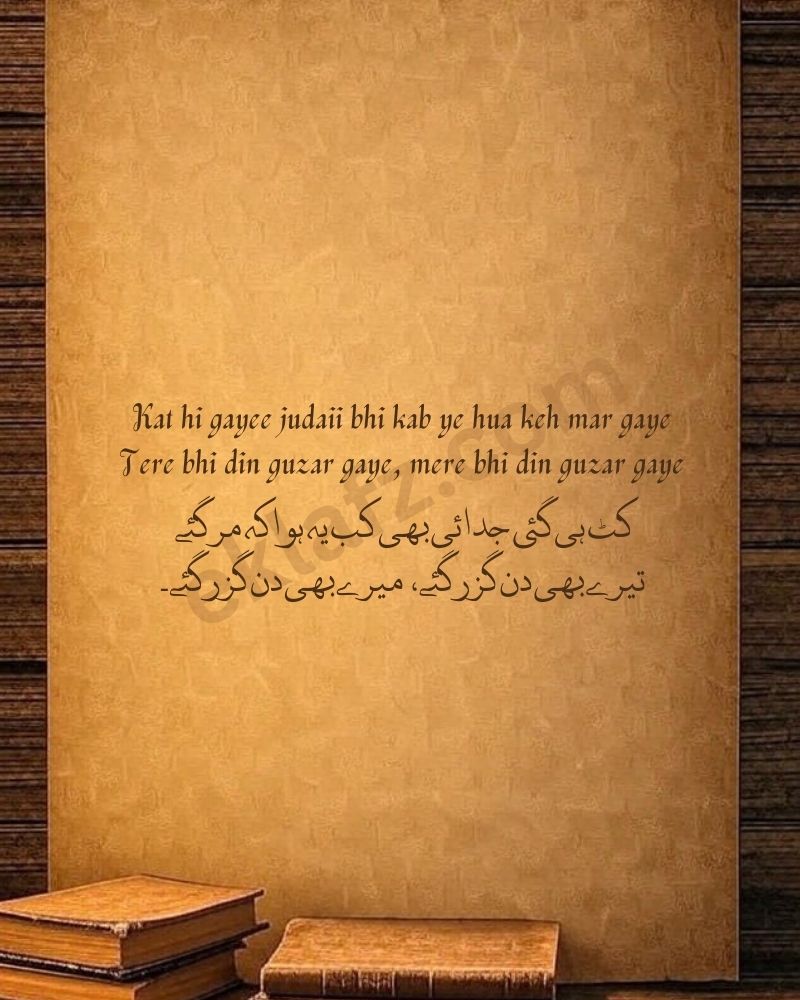 Kat hi gayee judaii bhi kab ye hua keh mar gaye
Tere bhi din guzar gaye, mere bhi din guzar gaye
کٹ ہی گئی جدائی بھی کب یہ ہوا کہ مر گئے
تیرے بھی دن گزر گئے، میرے بھی دن گزر گئے۔